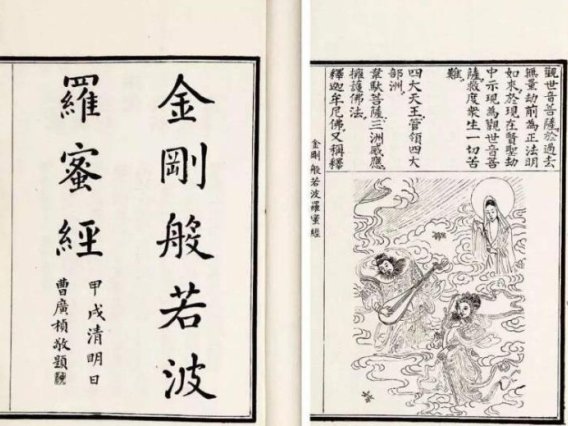 金剛般若波
羅蜜經
甲戌清明日
曹廣楨敬題
觀世音菩薩於過去
無量劫前為正法明
如來於現在賢聖劫
中示現為觀世音菩
薩救度眾生一切苦
難
四大天王管領四大
部洲
韋馱菩薩三洲感應
擁護佛法
釋迦牟尼佛又稱釋
金剛般若波羅蜜經